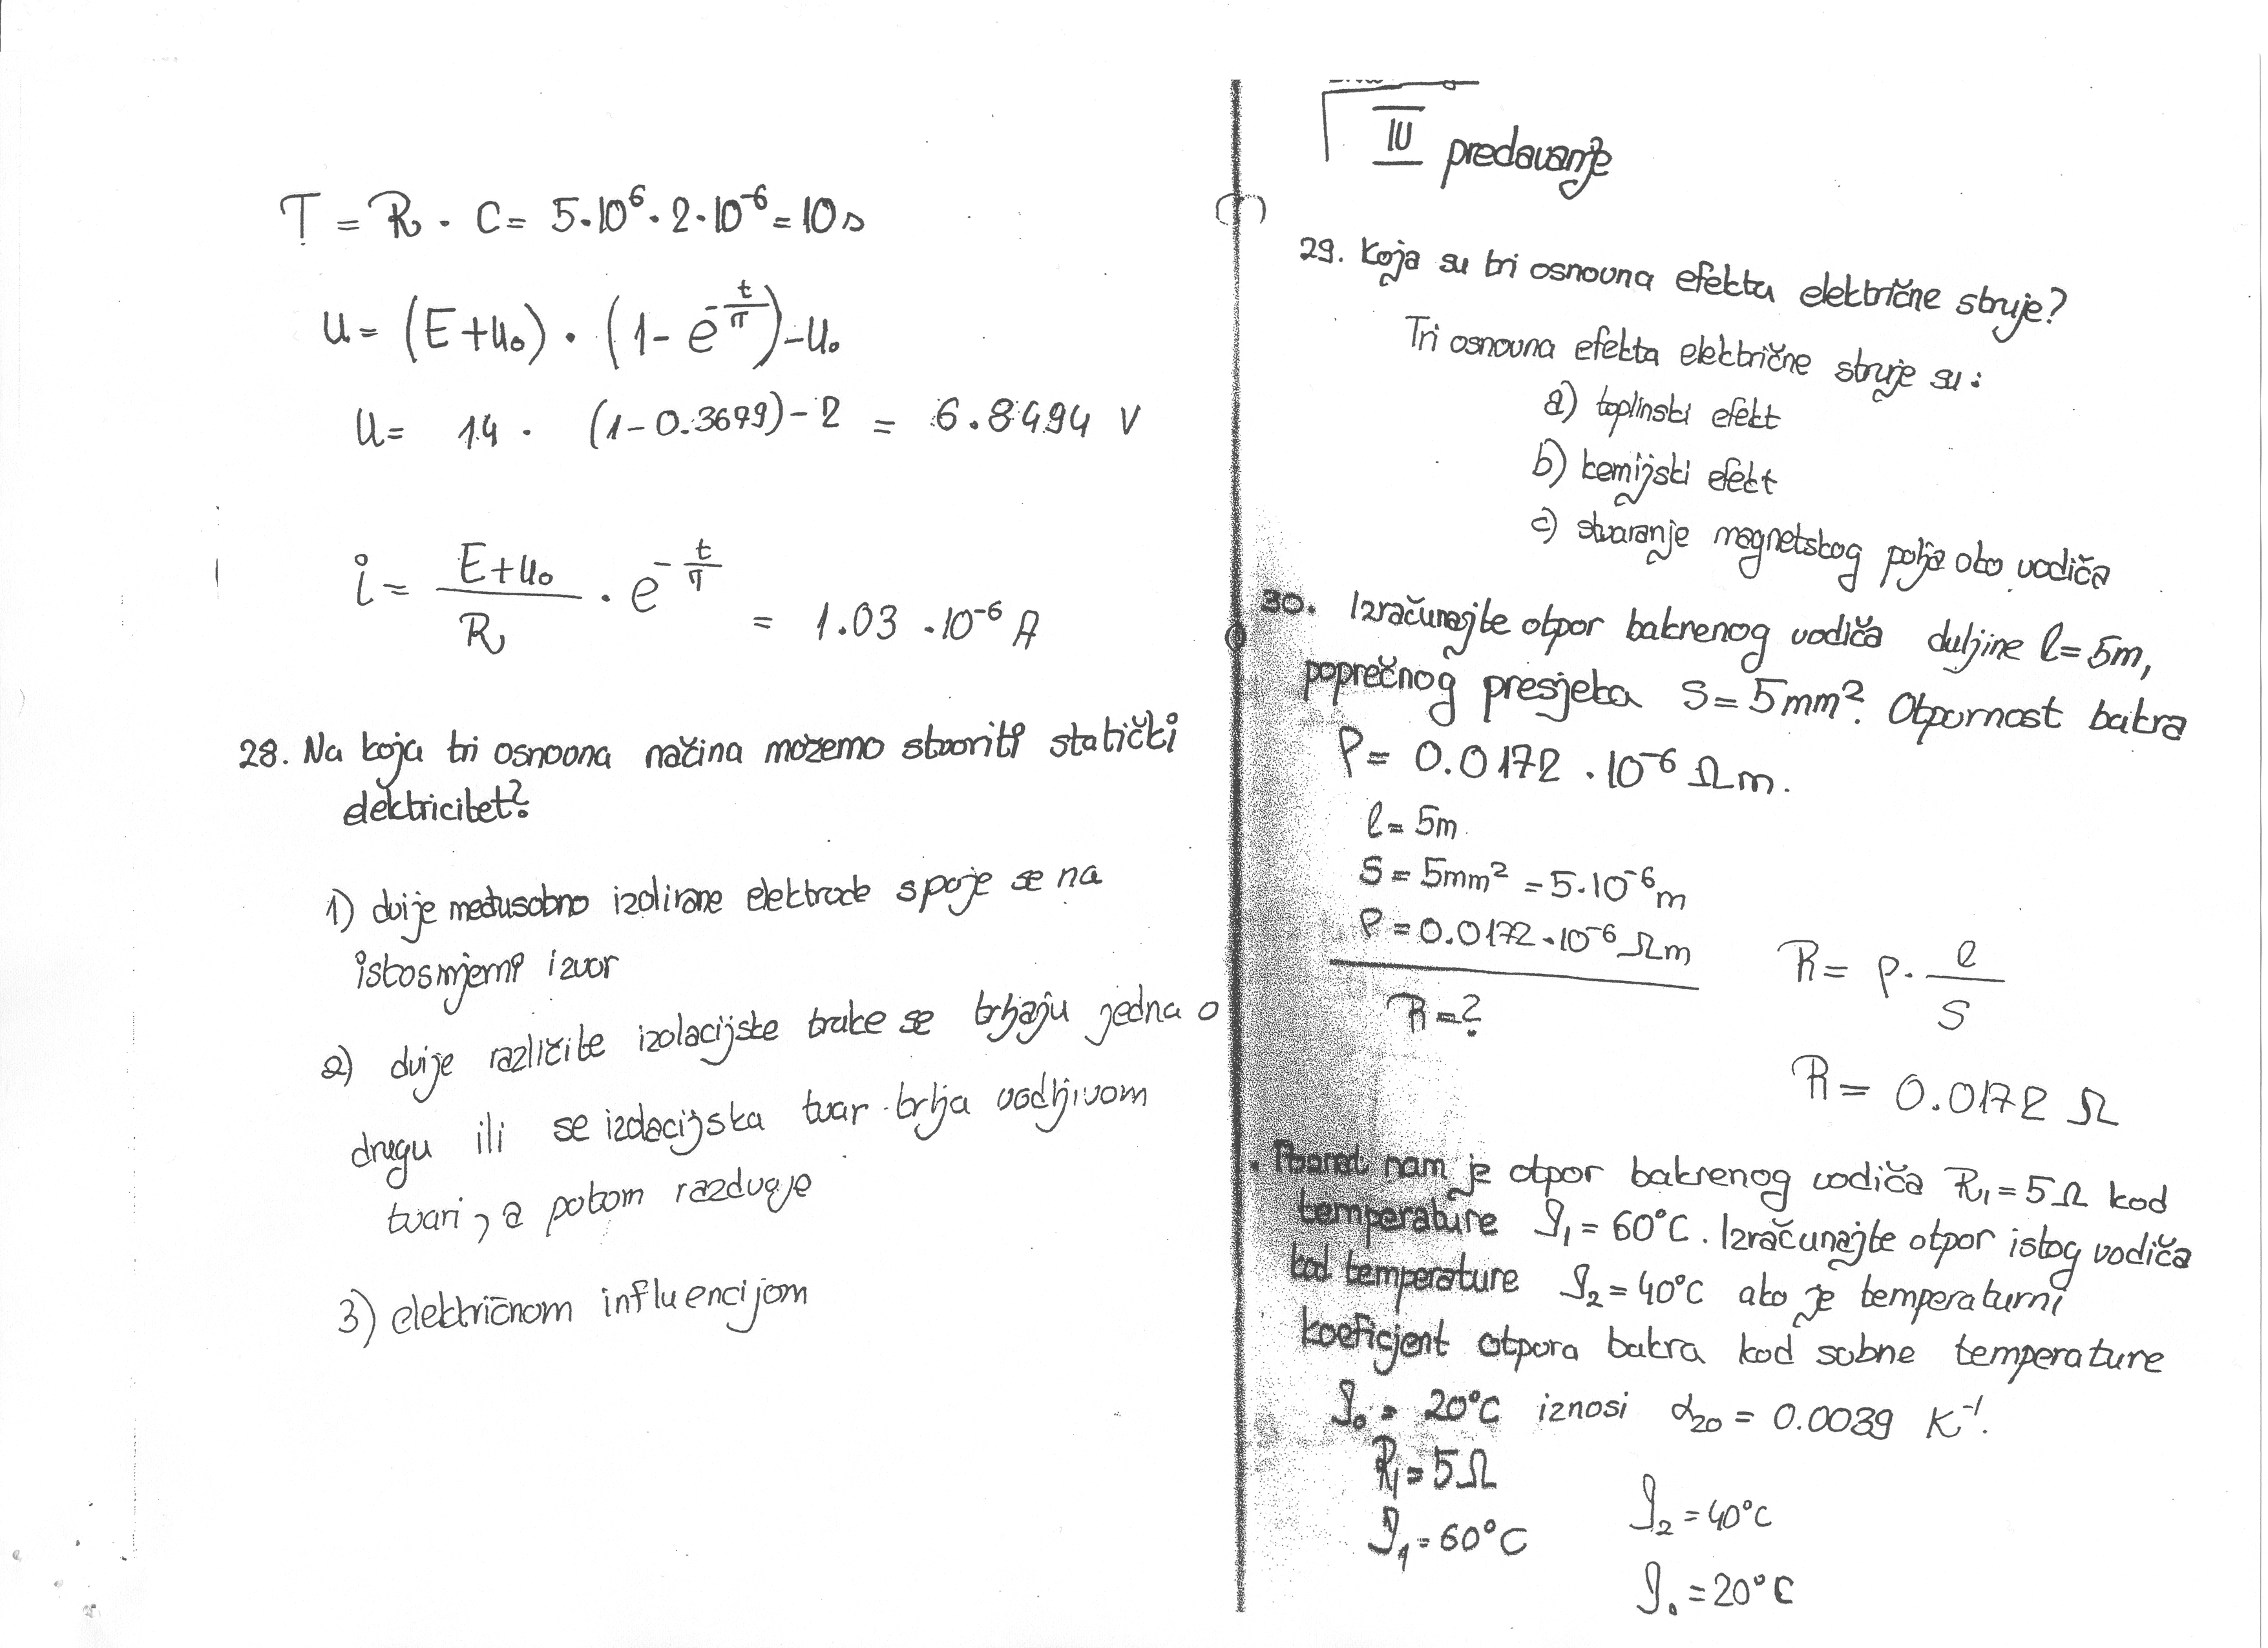 T = R · C = 5·10⁶ · 2·10⁻⁶ = 10 s
u = (E+u₀) · (1 - e^(-t/T)) - u₀
u = 14 · (1-0.3679) - 2 = 6.8494 V
i = (E+u₀)/R · e^(-t/T) = 1.03 · 10⁻⁶ A
28. Na koja tri osnovna načina možemo stvoriti statički
elektricitet?
1) dvije međusobno izolirane elektrode spoje se na
istosmjerni izvor
2) dvije različite izolacijske trake se trljaju jedna o
drugu ili se izolacijska tvar trlja vodljivom
tvari, a potom razdvoje
3) električnom influencijom
IV predavanje
29. Koja su tri osnovna efekta električne struje?
Tri osnovna efekta električne struje su:
a) toplinski efekt
b) kemijski efekt
c) stvaranje magnetskog polja oko vodiča
30. Izračunajte otpor bakrenog vodiča duljine l = 5m,
poprečnog presjeka S = 5mm². Otpornost bakra
ρ = 0.0172 · 10⁻⁶ Ωm.
l = 5m
S = 5mm² = 5·10⁻⁶ m
ρ = 0.0172·10⁻⁶ Ωm
R = ρ · l/S
R = ?
R = 0.0172 Ω
. nam je otpor bakrenog vodiča R₁ = 5Ω kod
temperature ϑ₁ = 60°C. Izračunajte otpor istog vodiča
kod temperature ϑ₂ = 40°C ako je temperaturni
koeficjent otpora bakra kod sobne temperature
ϑ₀ = 20°C iznosi α₂₀ = 0.0039 K⁻¹.
R₁ = 5Ω
ϑ₂ = 40°C
ϑ₁ = 60°C
ϑ₀ = 20°C